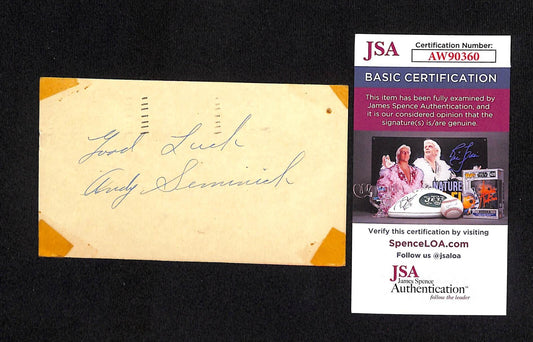 Good Luck
Andy Seminick
JSA
Certification Number:
AW90360
BASIC CERTIFICATION
This item has been fully examined by
James Spence Authentication, and
it is our considered opinion that the
signature(s) is/are genuine.
NATURE
JETS
Verify this certification by visiting
SpenceLOA.com
Follow us @jsaloa
JSA
James Spence
Authentication™
follow the leader